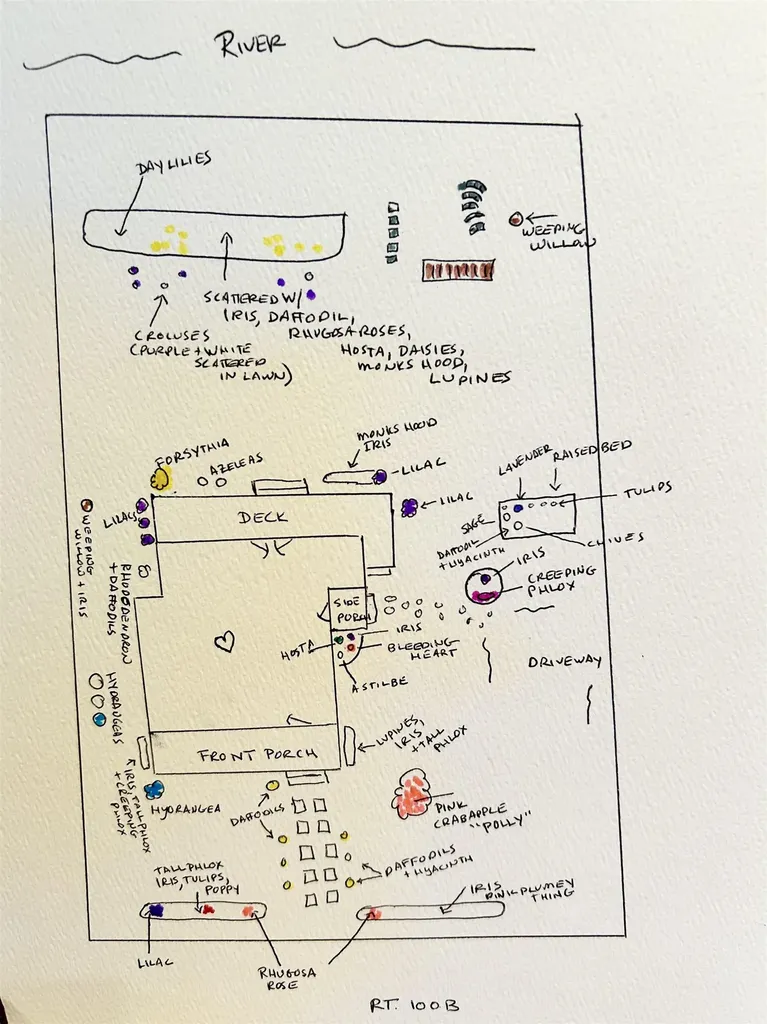 RIVER
DAYLILIES
WEEPING
WILLOW
SCATTERED W/
IRIS, DAFFODIL,
RHUGOSA ROSES,
HOSTA, DAISIES,
MONKS HOOD,
LUPINES
CROCUSES
(PURPLE + WHITE
SCATTERED
IN LAWN)
FORSYTHIA
AZELEAS
MONKS HOOD
IRIS
LILAC
LILAC
LAVENDER
RAISED BED
TULIPS
SAGE
DAFFODIL
+ HYACINTH
CHIVES
LILACS
DECK
WEEPING
WILLOW + IRIS
RHODODENDRON
+ DAFFODILS
IRIS
CREEPING
PHLOX
SIDE
PORCH
HOSTA
IRIS
BLEEDING
HEART
ASTILBE
DRIVEWAY
HYDRANGEAS
FRONT PORCH
LUPINES,
IRIS
+ TALL
PHLOX
IRIS, TALL PHLOX
+ CREEPING
PHLOX
HYDRANGEA
DAFFODILS
PINK
CRABAPPLE
"POLLY"
DAFFODILS
+ HYACINTH
TALL PHLOX
IRIS, TULIPS,
POPPY
IRIS
PINK PLUMEY
THING
LILAC
RHUGOSA
ROSE
RT. 100B